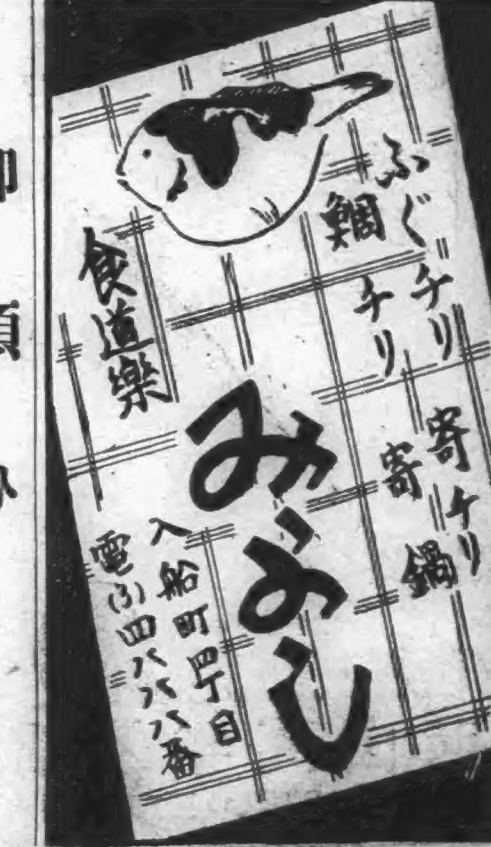 ふぐチリ
鯛チリ
寄チリ
寄鍋
食道樂
みよし
入船町四丁目
電(ふ)四八八八番